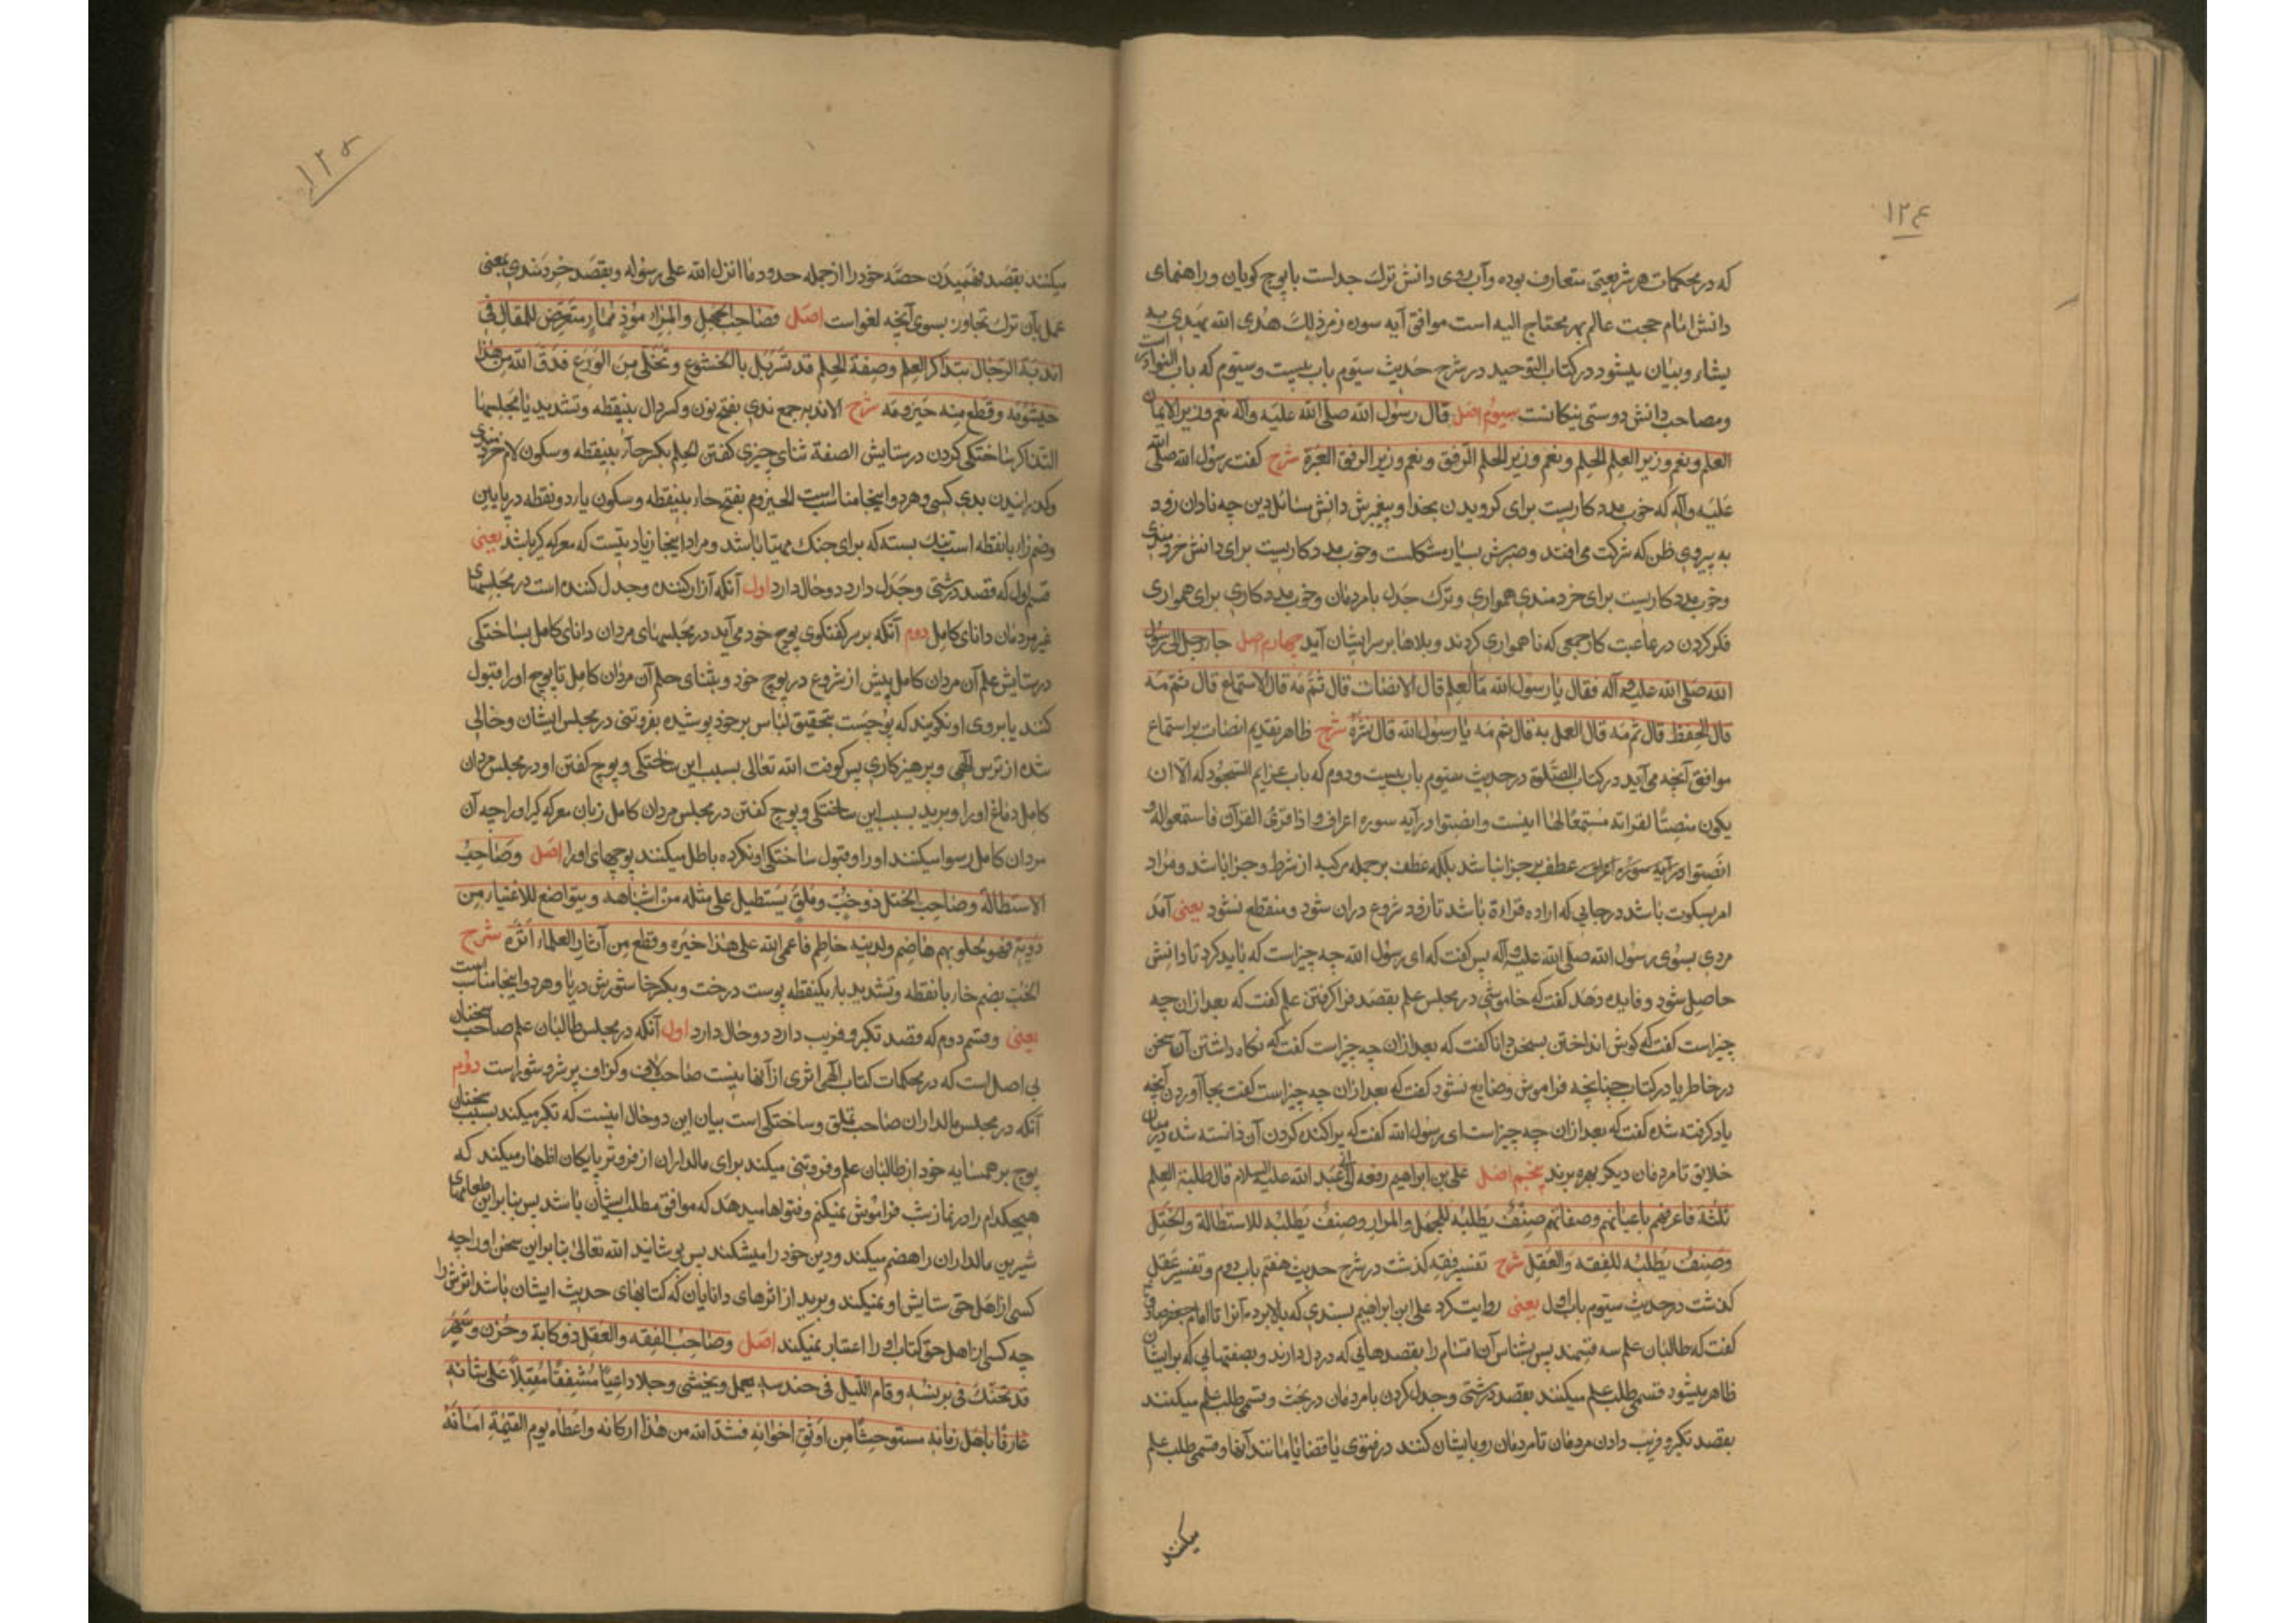 ۱۲۴
که در محکمات هر شریعتی متعارف بوده و آب روی دانش ترک جداست با پوچ کویان و راهنمای
دانش امام حجت عالم بهر محتاج الیه است موافق آیه سوره زمر ذلك هدى الله يهدى به
یشاء و بیان میشود در کتاب التوحید در شرح حدیث سیوم باب بیست و سیوم که باب النوادر است
و مصاحب دانش دوستی نیکانست سیوم اصل قال رسول الله صلى الله عليه وآله نعم وزير الايمان
العلم ونعم وزير العلم الحلم ونعم وزير الحلم الرفق ونعم وزير الرفق العبرة شرح کفت رسول الله صلى الله
علیه وآله که خوب مددکاریست برای کرویدن بخدا و پیغمبرش دانش مسائل دین چه نادان زود
به پیروی ظن که شرکت می افتد و صبرش بسیار مشکلست و خوب مددکاریست برای دانش خردمندی
و خوب مددکاریست برای خردمندی همواری و ترک جدل با مردمان و خوب مددکاری برای همواری
فکر کردن در عاقبت کار جمعی که ناهمواری کردند و بلاها بر سر ایشان آید چهارم اصل جاء رجل الى رسول
الله صلى الله عليه وآله فقال يا رسول الله ما العلم قال الانصات قال ثم مه قال الاستماع قال ثم مه
قال الحفظ قال ثم مه قال العمل به قال ثم مه يا رسول الله قال نشره شرح ظاهر تقدیم انصات بر استماع
موافق آنچه می آید در کتاب الصلوة در حدیث سیوم باب بیست و دوم که باب عزایم السجود که الا ان
يكون منصتا لقراته مستمعا لها اینست و انصتوا در آیه سوره اعراف و اذا قرئ القرآن فاستمعوا له و
انصتوا در آیه سوره اعراف عطف بر جزا نباشد بلکه عطف بر جمله مرکبه از شرط و جزا باشد و مراد
امر بسکوت باشد در جایی که اراده قراءة باشد تا زود شروع دران شود و منقطع نشود یعنی آمد
مردی بسوی رسول الله صلى الله عليه وآله پس کفت که ای رسول الله چه چیز است که باید کرد تا دانش
حاصل شود و فایده دهد کفت که خاموشی در مجلس علم بقصد فرا کرفتن علم کفت که بعد ازان چه
چیز است کفت که کوش انداختن بسخن دانا کفت که بعد ازان چه چیز است کفت که نکاه داشتن آن سخن
در خاطر یا در کتاب چنانچه فراموش و ضایع نشود کفت که بعد ازان چه چیز است کفت بجا آوردن آنچه
یاد کرفته شده کفت که بعد ازان چه چیز است ای رسول الله کفت که پراکنده کردن آن دانسته شده در میان
خلایق تا مردمان دیکر بهره برند پنجم اصل على بن ابراهيم رفعه الى ابى عبد الله عليه السلام قال طلبة العلم
ثلثة فاعرفهم باعيانهم وصفاتهم صنف يطلبه للجهل والمراء وصنف يطلبه للاستطالة والختل
وصنف يطلبه للفقه والعقل شرح تفسیر فقه کذشت در شرح حدیث هفتم باب دوم و تفسیر عقل
کذشت در حدیث سیوم باب اول یعنی روایت کرد علی ابن ابراهیم بسندی که بالا برد آنرا تا امام جعفر صادق
کفت که طالبان علم سه قسمند پس بشناس آن اقسام را بقصدهایی که در دل دارند و بصفتهایی که بر ایشان
ظاهر میشود قسمی طلب علم میکنند بقصد درشتی و جدل کردن با مردمان در بحث و قسمی طلب علم میکنند
بقصد تکبر و فریب دادن مردمان تا مردمان رو بایشان کنند در فتوی یا قضا یا مانند آنها و قسمی طلب علم
میکنند
۱۲۵
میکنند بقصد فهمیدن حصه خود را از جمله حدود ما انزل الله على رسوله و بقصد خردمندی یعنی
عمل بآن ترک تجاوز بسوی آنچه لغو است اصل فصاحب الجهل والمراء موذ ممار متعرض للمقال فى
اندية الرجال بتذاكر العلم وصفة الحلم قد تسربل بالخشوع وتخلى من الورع فدق الله من هذا
خيشومه وقطع منه حيزومه شرح الاندیه جمع ندی بفتح نون و کسر دال بینقطه و تشدید یا مجلسها
التذاکر ساختکی کردن در ستایش الصفة ثنای چیزی کفتن الحلم بکسر حاء بینقطه و سکون لام خردمندی
و کذرانیدن بدی کسی و هر دو اینجا مناسب است الحیزوم بفتح حاء بینقطه و سکون یاء دو نقطه در پایین
و ضم زاء بانقطه است تنک بسته که برای جنک مهیا باشد و مراد اینجا زیادیست که معرکه کیر باشد یعنی
قسم اول که قصد درشتی و جدل دارد دو حال دارد اول آنکه آزار کننده و جدل کننده است در مجلسهای
غیر مردمان دانای کامل دوم آنکه بر سر کفتکوی پوچ خود می آید در مجلسهای مردان دانای کامل بساختکی
در ستایش علم آن مردان کامل پیش از شروع در پوچ خود و بثنای حلم آن مردان کامل تا پوچ او را قبول
کنند یا بروی او نکویند که پوچست بتحقیق لباس بر خود پوشیده بفروتنی در مجلس ایشان و خالی
شده از ترس الهی و پرهیزکاری پس کوفت الله تعالی بسبب این ساختکی و پوچ کفتن او در مجلس مردان
کامل دماغ او را و برید بسبب این ساختکی و پوچ کفتن در مجلس مردان کامل زبان معرکه کیر او را چه آن
مردان کامل رسوا میکنند او را و قبول ساختکی او نکرده باطل میکنند پوچهای او را اصل وصاحب
الاستطالة وصاحب الختل ذو خب وملق يستطيل على مثله من اشباهه ويتواضع للاغنياء من
دونه فهو لحلوائهم هاضم ولدينه حاطم فاعمى الله على هذا خبره وقطع من آثار العلماء اثره شرح
الخب بضم خاء بانقطه و تشدید باء یکنقطه پوست درخت و بکسر خا شورش دریا و هر دو اینجا مناسب است
یعنی و قسم دوم که قصد تکبر و فریب دارد دو حال دارد اول آنکه در مجلس طالبان علم صاحب سخنان
بی اصل است که در محکمات کتاب الهی اثری از آنها نیست صاحب لاف و کزاف پر شر و شور است دوم
آنکه در مجلس مالداران صاحب تملق و ساختکی است بیان این دو حال اینست که تکبر میکند بسبب سخنان
پوچ بر همسایه خود از طالبان علم و فروتنی میکند برای مالداران از فروتر پایکان اظهار میکند که
هیچکدام را در نماز شب فراموش نمیکنم و فتواها میدهد که موافق مطلب ایشان باشد پس بنابراین طعامهای
شیرین مالداران را هضم میکند و دین خود را میشکند پس پوشانید الله تعالی بنابراین سخن او را چه
کسی از اهل حق ستایش او نمیکند و برید از اثرهای دانایان که کتابهای حدیث ایشان باشد اثرش را
چه کسی از اهل حق کتاب او را اعتبار نمیکند اصل وصاحب الفقه والعقل ذو كابة وحزن وسهر
قد تحنك فى برنسه وقام الليل فى حندسه يعمل ويخشى وجلا داعيا مشفقا مقبلا على شانه
عارفا باهل زمانه مستوحشا من اوثق اخوانه فشد الله من هذا اركانه واعطاه يوم القيمة امانه